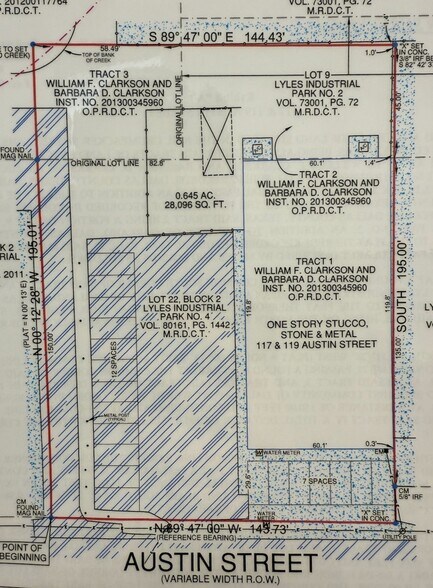 201200117764
O.P.R.D.C.T.
VOL. 73001, PG. 72
M.R.D.C.T.
S 89° 47' 00" E 144.43'
58.49'
TOP OF BANK
OF CREEK
1.0'
"X" SET
IN CONC.
3/8" IRF BE
S 82° 42' 3
E TO SET
O CREEK)
TRACT 3
WILLIAM F. CLARKSON AND
BARBARA D. CLARKSON
INST. NO. 201300345960
O.P.R.D.C.T.
ORIGINAL LOT LINE
LOT 9
LYLES INDUSTRIAL
PARK NO. 2
VOL. 73001, PG. 72
M.R.D.C.T.
45.00'
FOUND
MAG NAIL
ORIGINAL LOT LINE
82.8'
60.1'
1.4'
0.645 AC.
28,096 SQ. FT.
TRACT 2
WILLIAM F. CLARKSON AND
BARBARA D. CLARKSON
INST. NO. 201300345960
O.P.R.D.C.T.
N 00° 12' 28" W 195.01'
(PLAT = N 00° 13' E)
150.00'
K 2
RIAL
2011-
TRACT 1
WILLIAM F. CLARKSON AND
BARBARA D. CLARKSON
INST. NO. 201300345960
O.P.R.D.C.T.
SOUTH 195.00'
119.8'
119.8'
135.00'
LOT 22, BLOCK 2
LYLES INDUSTRIAL
PARK NO. 4
VOL. 80161, PG. 1442
M.R.D.C.T.
ONE STORY STUCCO,
STONE & METAL
117 & 119 AUSTIN STREET
12 SPACES
METAL POST
(TYPICAL)
60.1'
0.3'
WATER METER
EM
29.6'
7 SPACES
CM
FOUND
MAG NAIL
CM
5/8" IRF
WATER
METER
"X" SET
IN CONC.
N 89° 47' 00" W 143.73'
(REFERENCE BEARING)
UTILITY POLE
POINT OF
BEGINNING
AUSTIN STREET
(VARIABLE WIDTH R.O.W.)